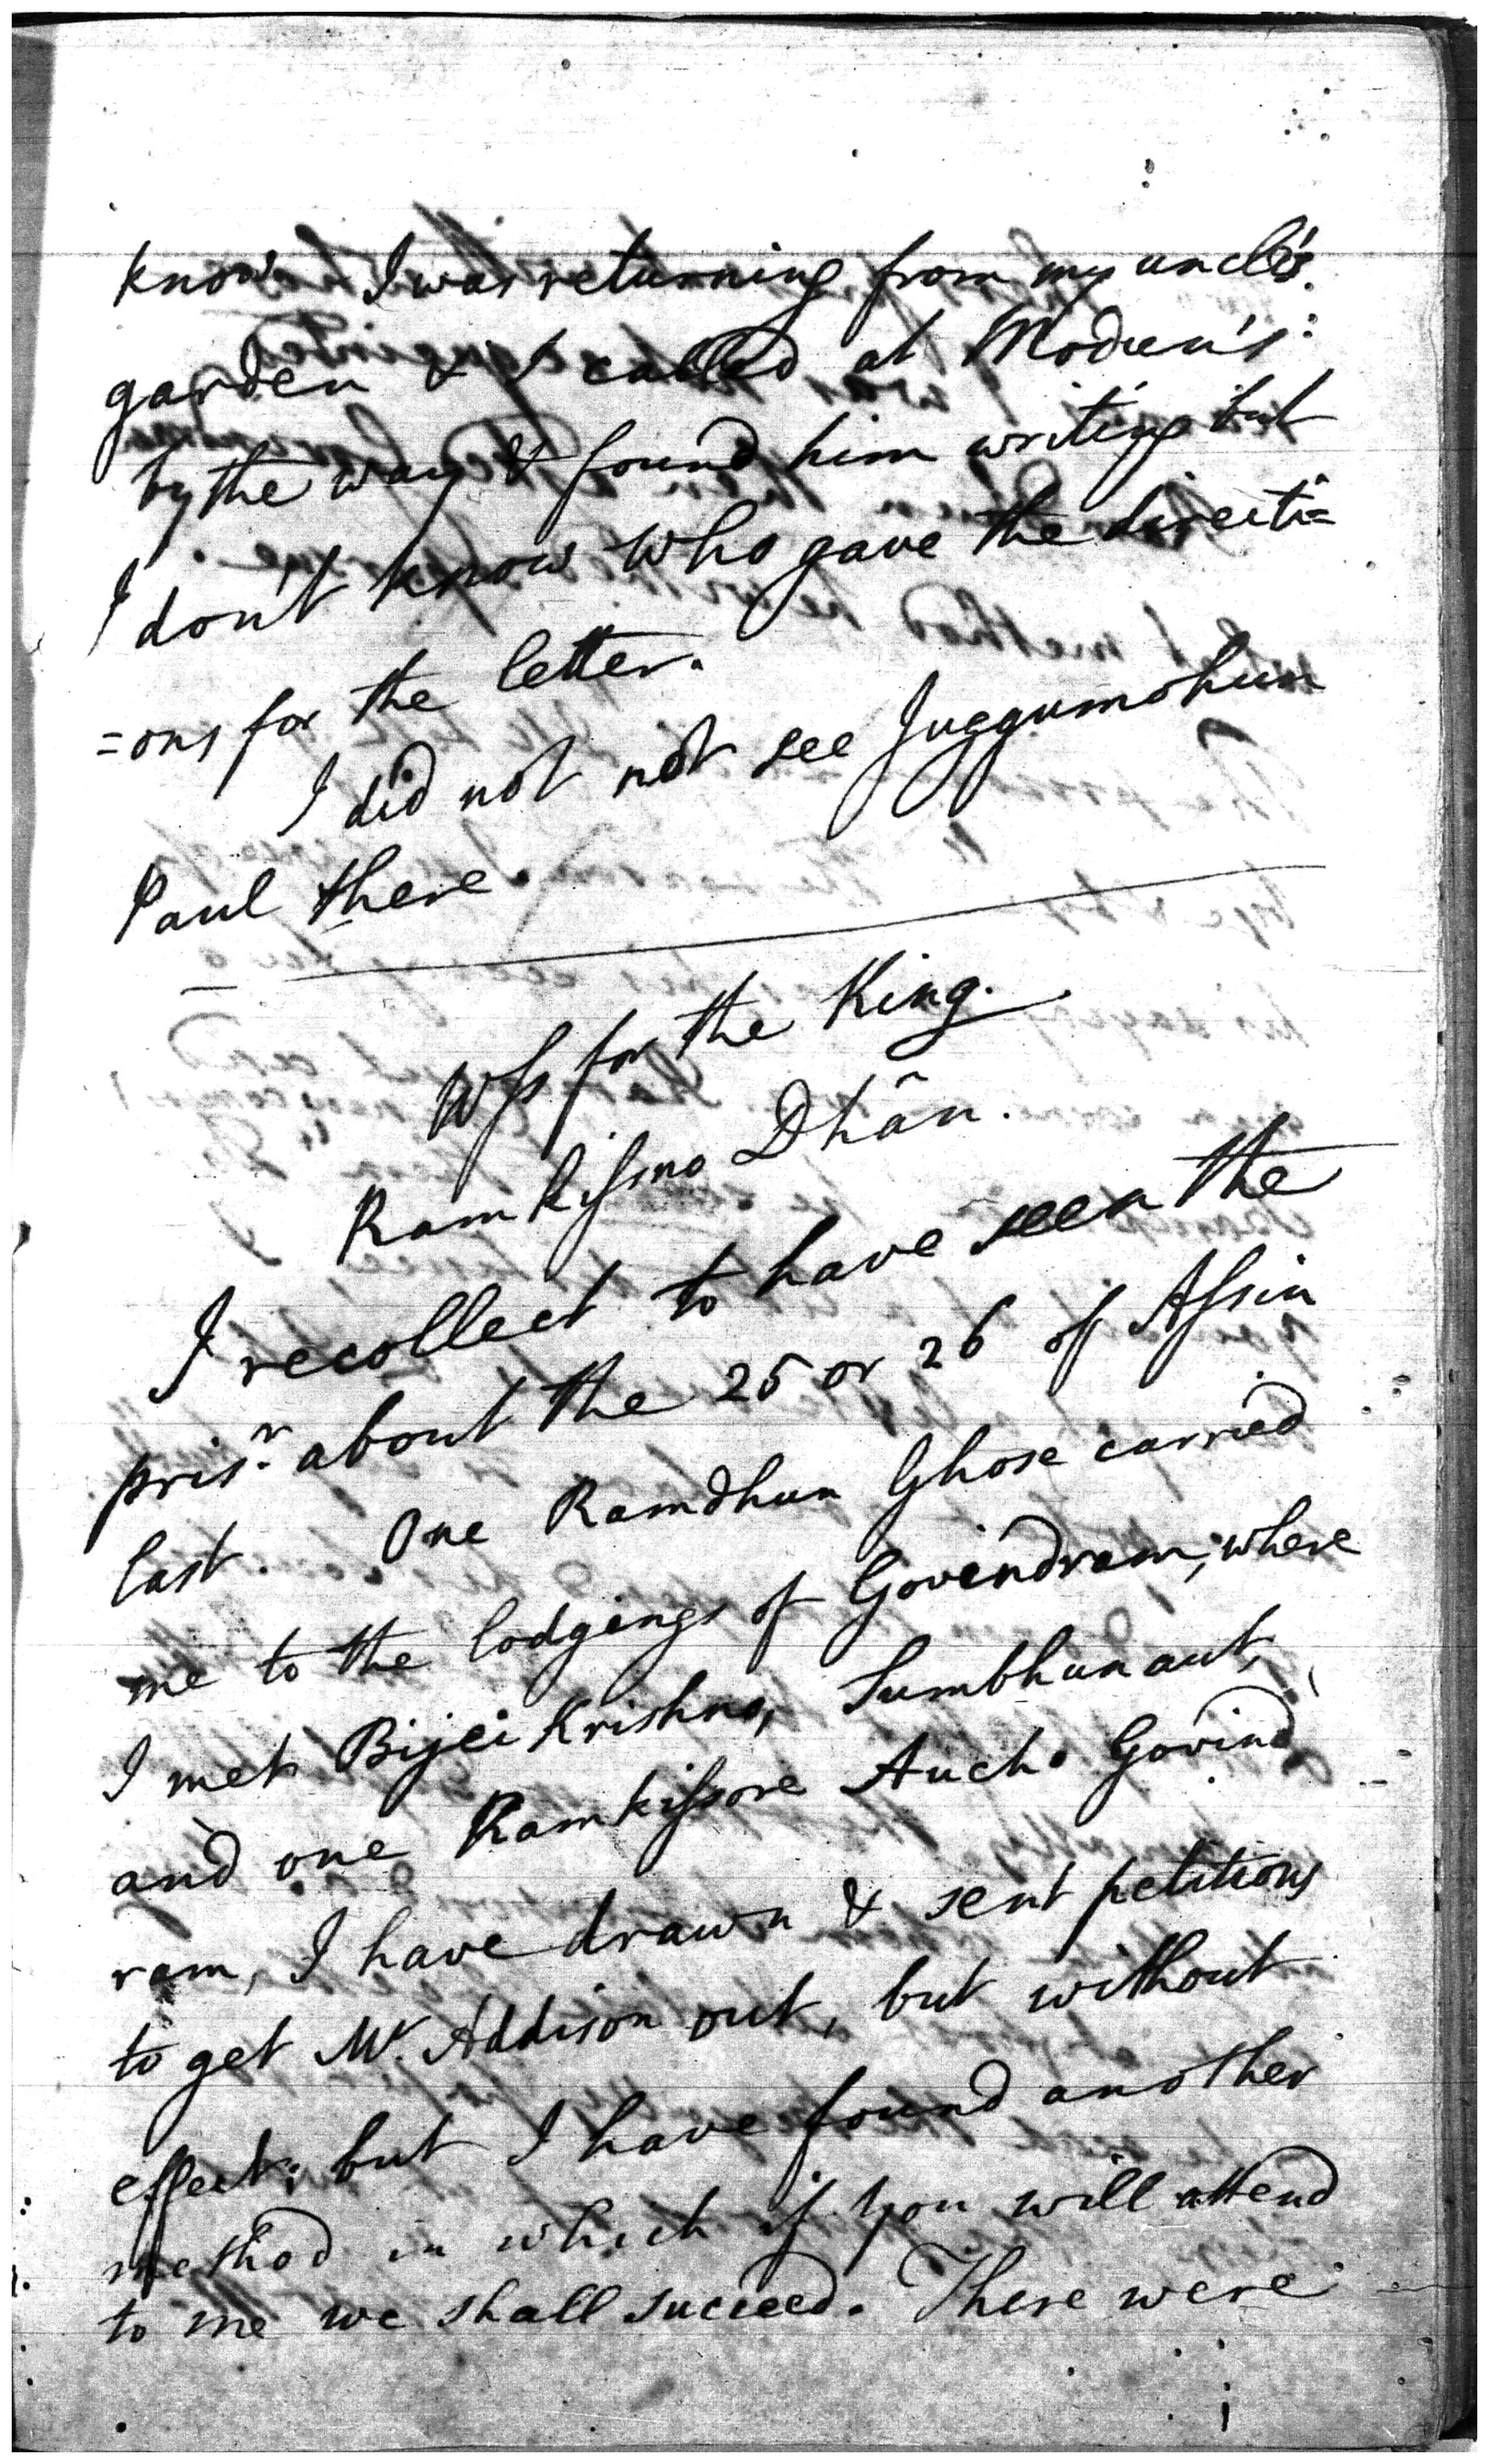 know. I was returning from my uncle's
garden & I called at Modun's
by the way & found him writing but
I don't know who gave the directi=
=ons for the letter.
I did not not see Juggumohun
Paul there.
Wss for the King.
Ramkissno Dhân.
I recollect to have seen the
prisr. about the 25 or 26 of Assin
last. One Ramdhun Ghose carried
me to the lodgings of Govindram, where
I met Bijei Krishno, Sumbhunaut,
and one Ramkissore Aucho Govind
ram, I have drawn & sent petitions
to get Mr. Addison out, but without
effect; but I have found another
method in which if you will attend
to me we shall succeed. There were